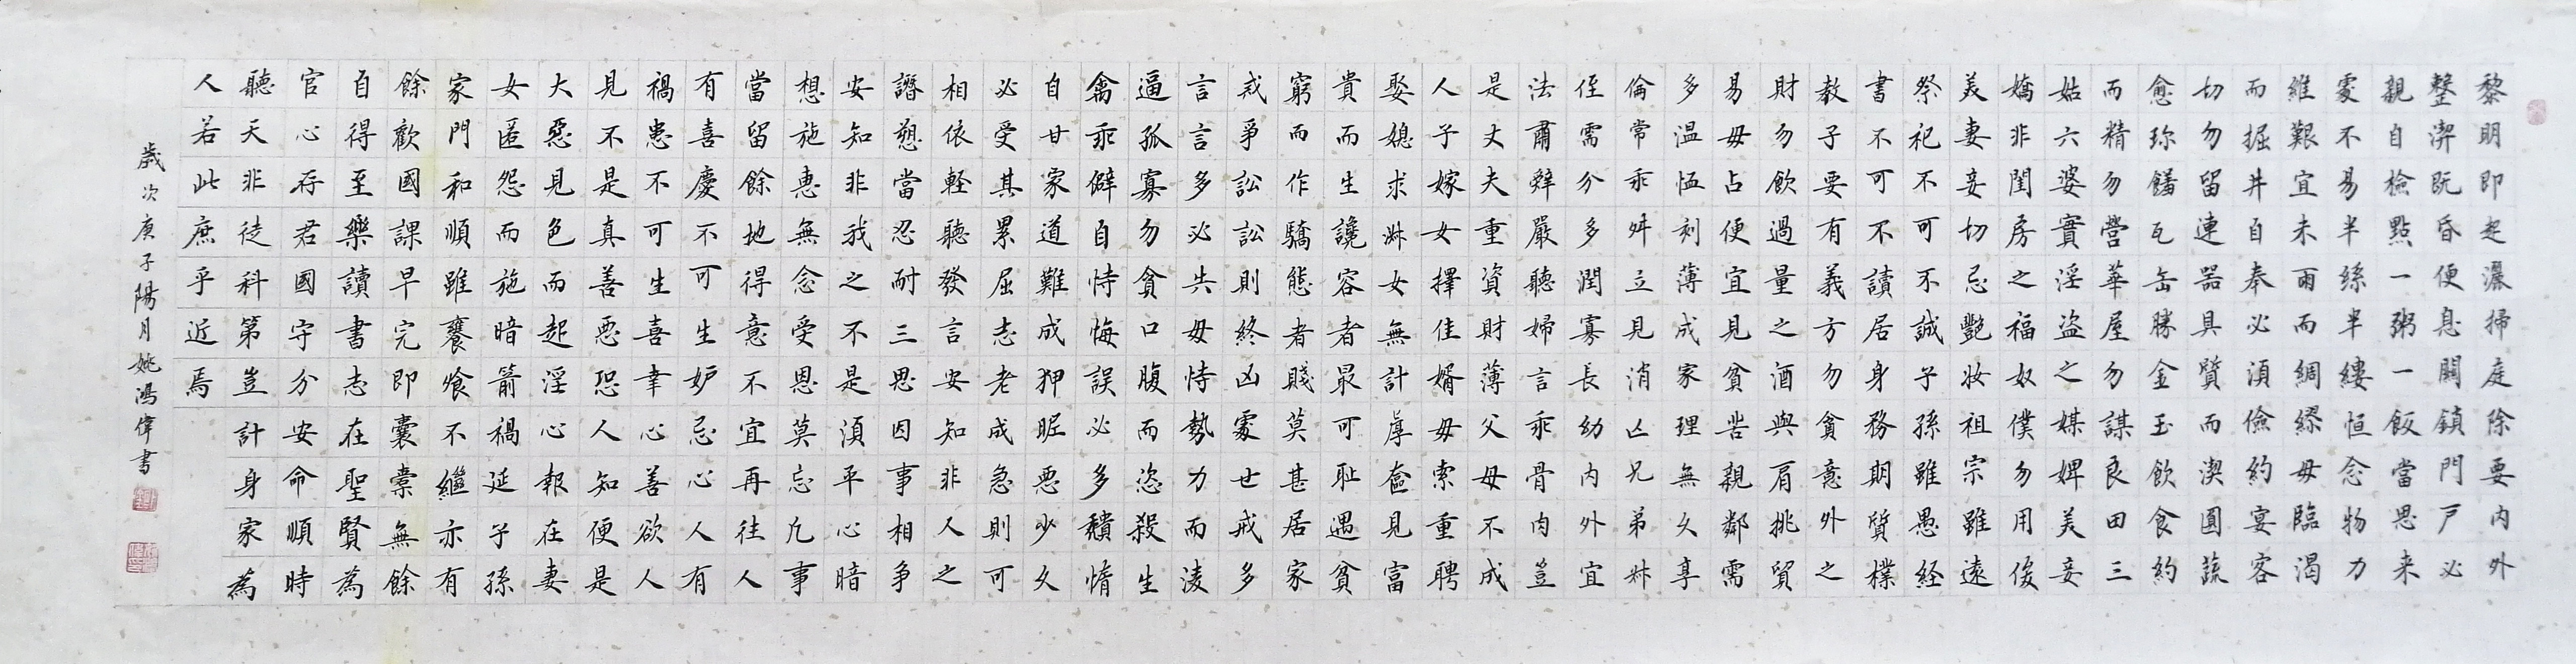 黎明即起灑掃庭除要內外
整潔既昏便息關鎖門戶必
親自檢點一粥一飯當思来
處不易半絲半縷恒念物力
維艱宜未雨而綢繆毋臨渴
而掘井自奉必須儉約宴客
切勿留連器具質而潔園蔬
愈珍饈瓦缶勝金玉飲食約
而精勿營華屋勿謀良田三
姑六婆實淫盜之媒婢美妾
嬌非閨房之福奴僕勿用俊
美妻妾切忌艷妝祖宗雖遠
祭祀不可不誠子孫雖愚経
書不可不讀居身務期質樸
教子要有義方勿貪意外之
財勿飲過量之酒與肩挑貿
易毋占便宜見貧苦親鄰需
多温恤刻薄成家理無久享
倫常乖舛立見消亡兄弟叔
侄需分多潤寡長幼內外宜
法肅辭嚴聽婦言乖骨肉豈
是丈夫重資財薄父母不成
人子嫁女擇佳婿毋索重聘
娶媳求淑女無計厚奩見富
貴而生讒容者最可恥遇貧
窮而作驕態者賤莫甚居家
戒爭訟訟則終凶處世戒多
言言多必失毋恃勢力而凌
逼孤寡勿貪口腹而恣殺生
禽乖僻自恃悔誤必多穨惰
自甘家道難成狎昵惡少久
必受其累屈志老成急則可
相依軽聽發言安知非人之
譖愬當忍耐三思因事相争
安知非我之不是須平心暗
想施惠無念受恩莫忘凡事
當留餘地得意不宜再往人
有喜慶不可生妒忌心人有
禍患不可生喜幸心善欲人
見不是真善惡恐人知便是
大惡見色而起淫心報在妻
女匿怨而施暗箭禍延子孫
家門和順雖饔飧不繼亦有
餘歡國課早完即囊橐無餘
自得至樂讀書志在聖賢為
官心存君國守分安命順時
聽天非徒科第豈計身家為
人若此庶乎近焉
歲次庚子陽月姚鴻偉書